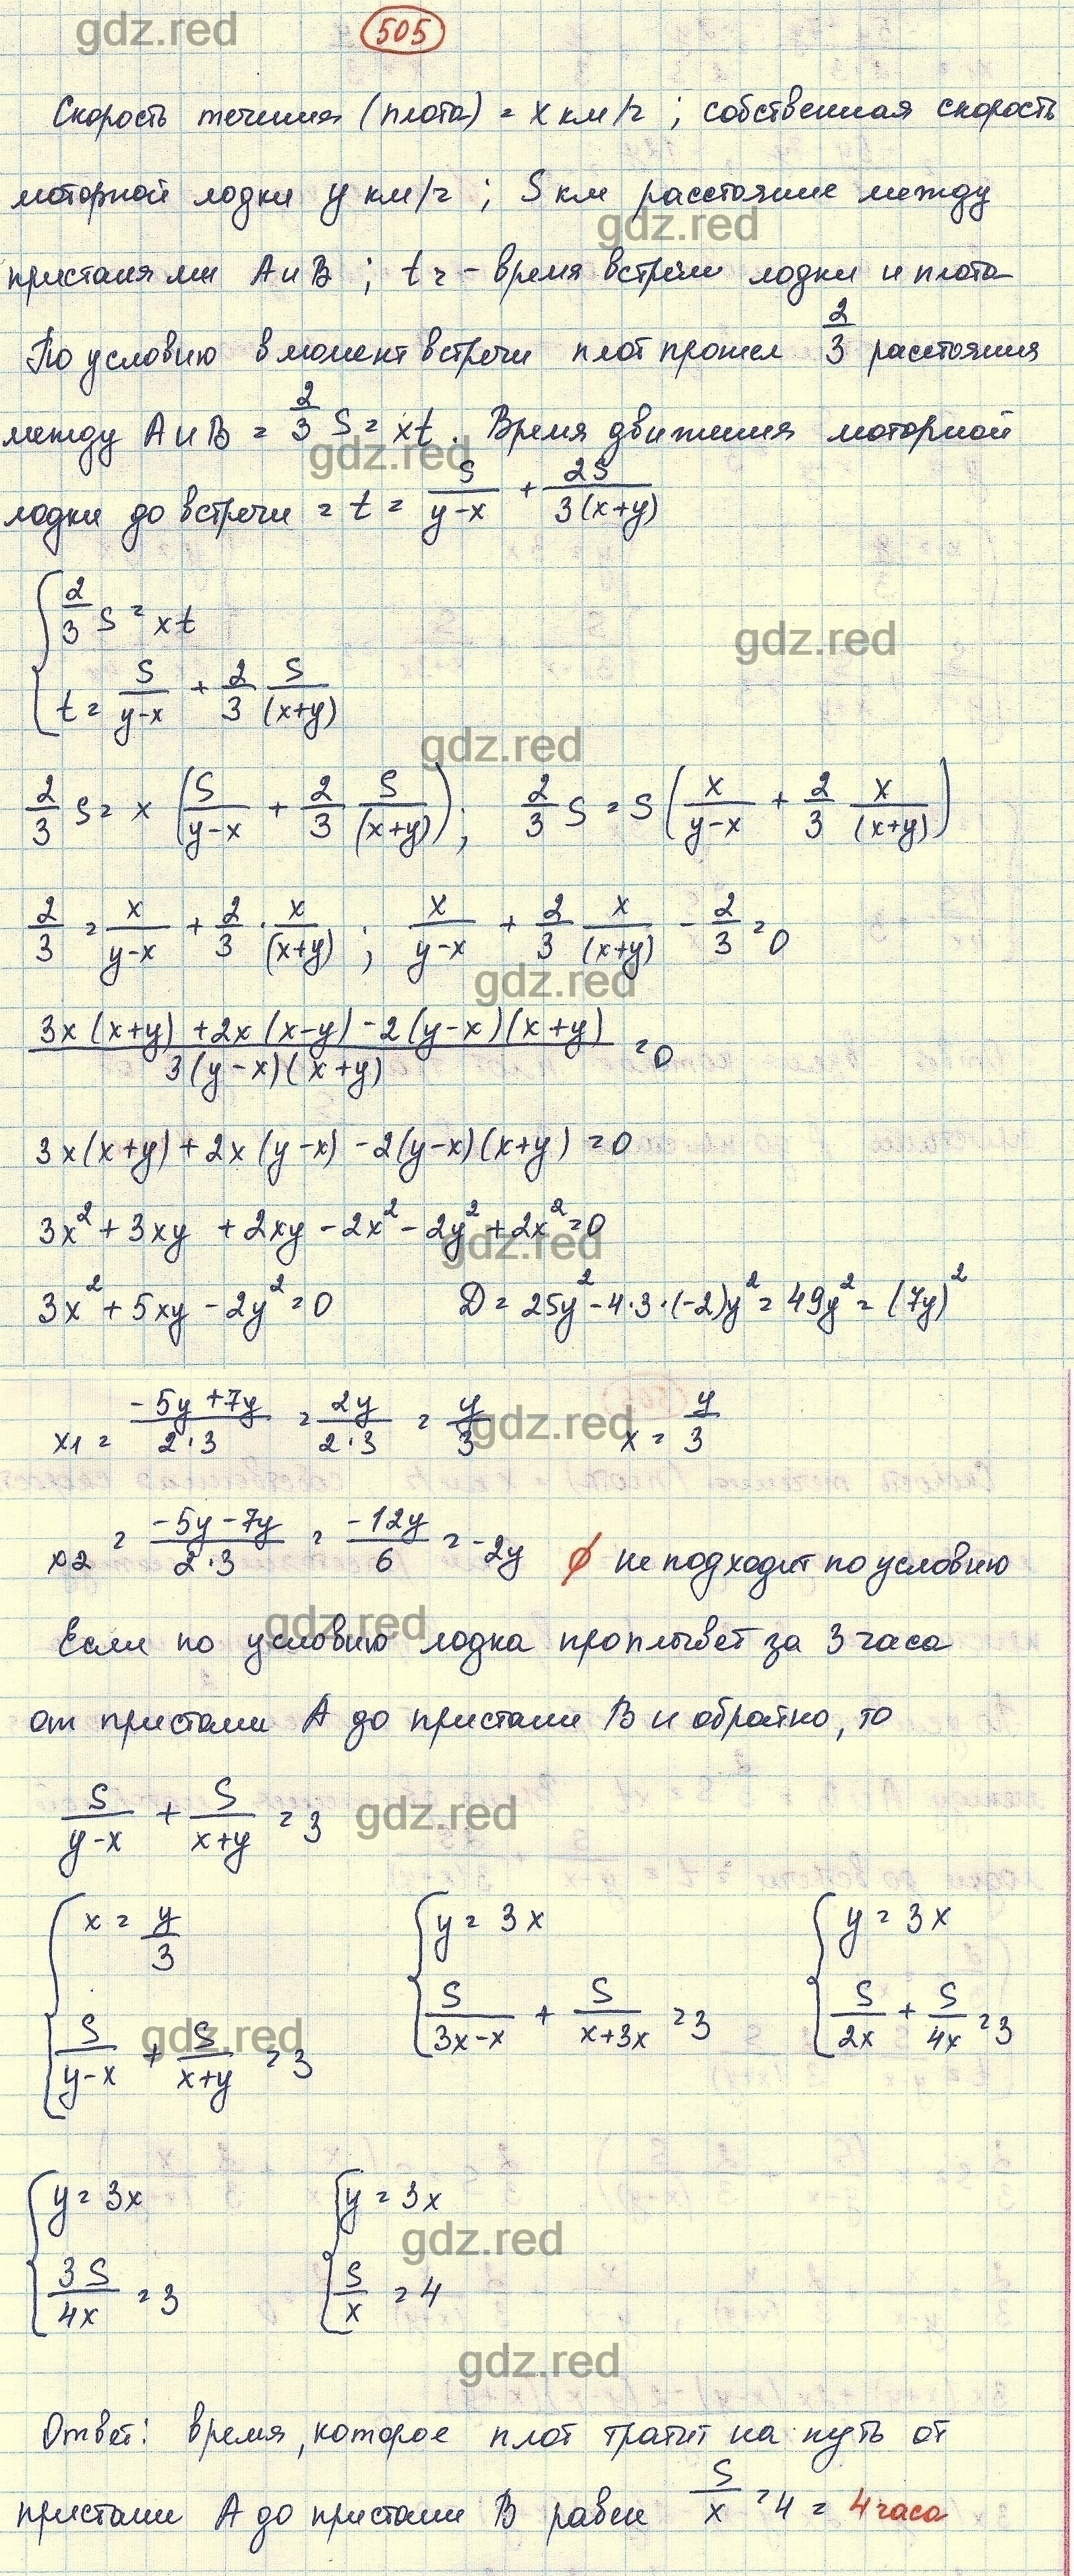 gdz.red
505
Скорость течения (плота) = x км/ч ; собственная скорость
моторной лодки y км/ч ; S км расстояние между
gdz.red
пристанями А и В ; t ч - время встречи лодки и плота
По условию в момент встречи плот прошел 2/3 расстояния
между А и В = 2/3 S = xt. Время движения моторной
gdz.red
лодки до встречи = t = S/(y-x) + 2S/(3(x+y))
{ 2/3 S = xt
gdz.red
t = S/(y-x) + 2/3 S/(x+y)
gdz.red
2/3 S = x (S/(y-x) + 2/3 S/(x+y)) ; 2/3 S = S (x/(y-x) + 2/3 x/(x+y))
2/3 = x/(y-x) + 2/3 · x/(x+y) ; x/(y-x) + 2/3 x/(x+y) - 2/3 = 0
gdz.red
(3x(x+y) + 2x(x-y) - 2(y-x)(x+y))/(3(y-x)(x+y)) = 0
3x(x+y) + 2x(y-x) - 2(y-x)(x+y) = 0
3x² + 3xy + 2xy - 2x² - 2y² + 2x² = 0
gdz.red
3x² + 5xy - 2y² = 0 D = 25y² - 4·3·(-2)y² = 49y² = (7y)²
x1 = (-5y+7y)/(2·3) = 2y/(2·3) = y/3 x = y/3
gdz.red
x2 = (-5y-7y)/(2·3) = -12y/6 = -2y ∅ не подходит по условию
gdz.red
Если по условию лодка проплывет за 3 часа
от пристани А до пристани В и обратно, то
S/(y-x) + S/(x+y) = 3
gdz.red
{ x = y/3 { y = 3x { y = 3x
S/(y-x) + S/(x+y) = 3 S/(3x-x) + S/(x+3x) = 3 S/2x + S/4x = 3
gdz.red
{ y = 3x { y = 3x
gdz.red
3S/4x = 3 S/x = 4
gdz.red
Ответ: время, которое плот тратит на путь от
пристани А до пристани В равен S/x = 4 = 4 часа